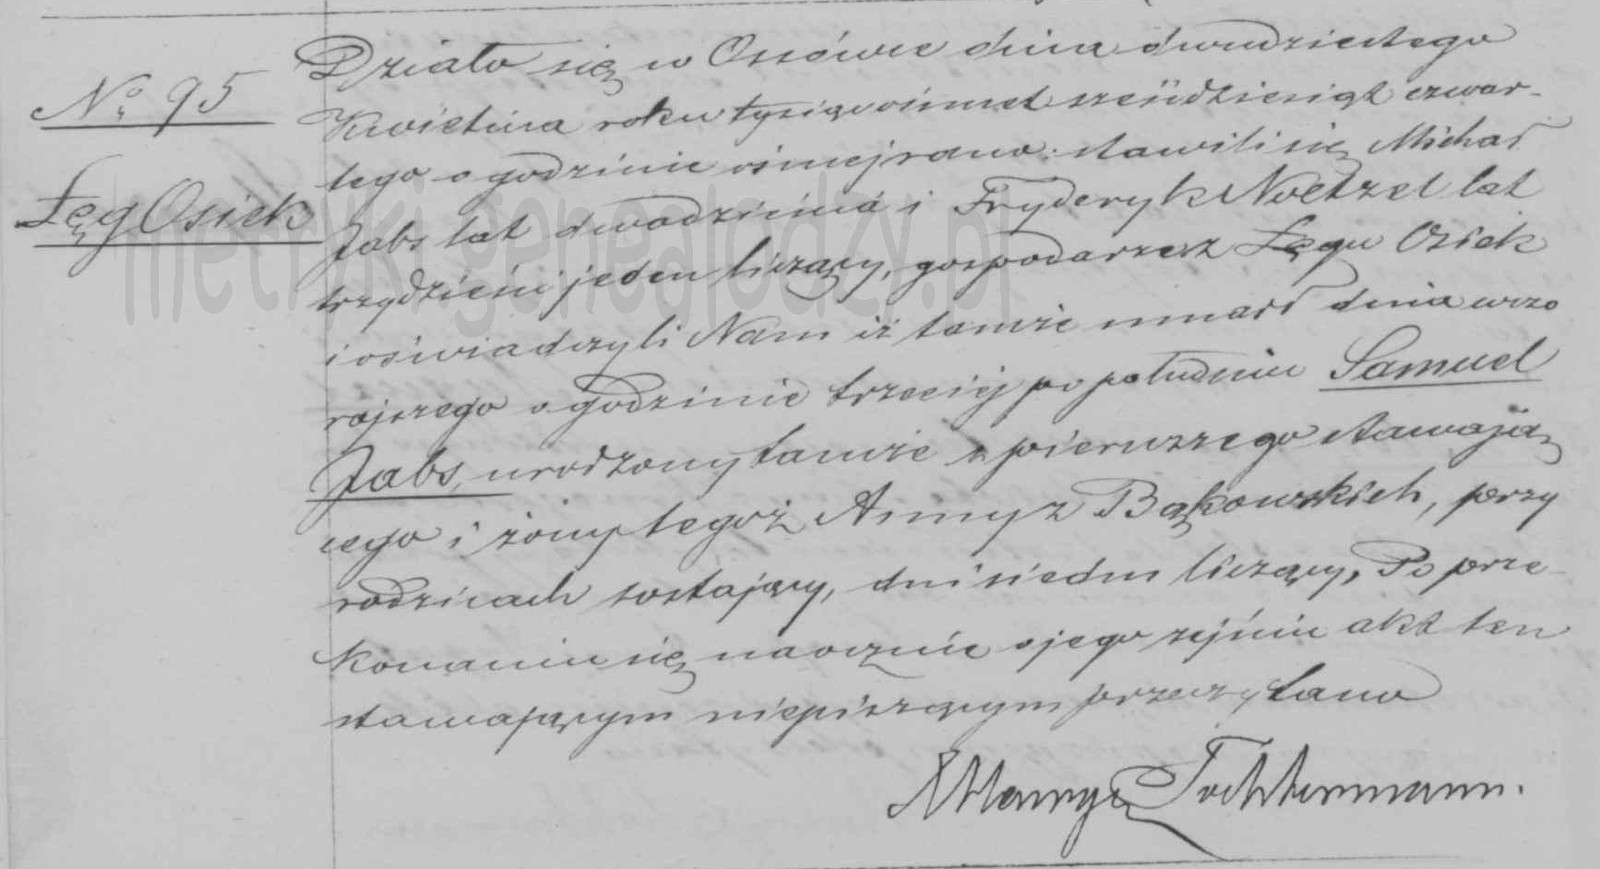 No 95
Łęg Osiek
Działo się w Ossówce dnia dwudziestego
Kwietnia roku tysiąc ośmset sześdziesiąt czwar-
tego o godzinie ósmej rano: stawili się Michał
Jabs lat dwadzieścia i Fryderyk Noetzel lat
trzydzieści jeden liczący, gospodarze z Łęgu Osiek
i oświadczyli Nam iż tamże umarł dnia wczo
rajszego o godzinie trzeciej po południu Samuel
Jabs, urodzony tamże z pierwszego stawają
cego i żony tegoż Anny z Bąkowskich, przy
rodzicach zostający, dni siedm liczący, Po prze-
konaniu się naocznie o jego zejściu akt ten
stawającym niepiszącym przeczytano
metryki.genealodzy.pl